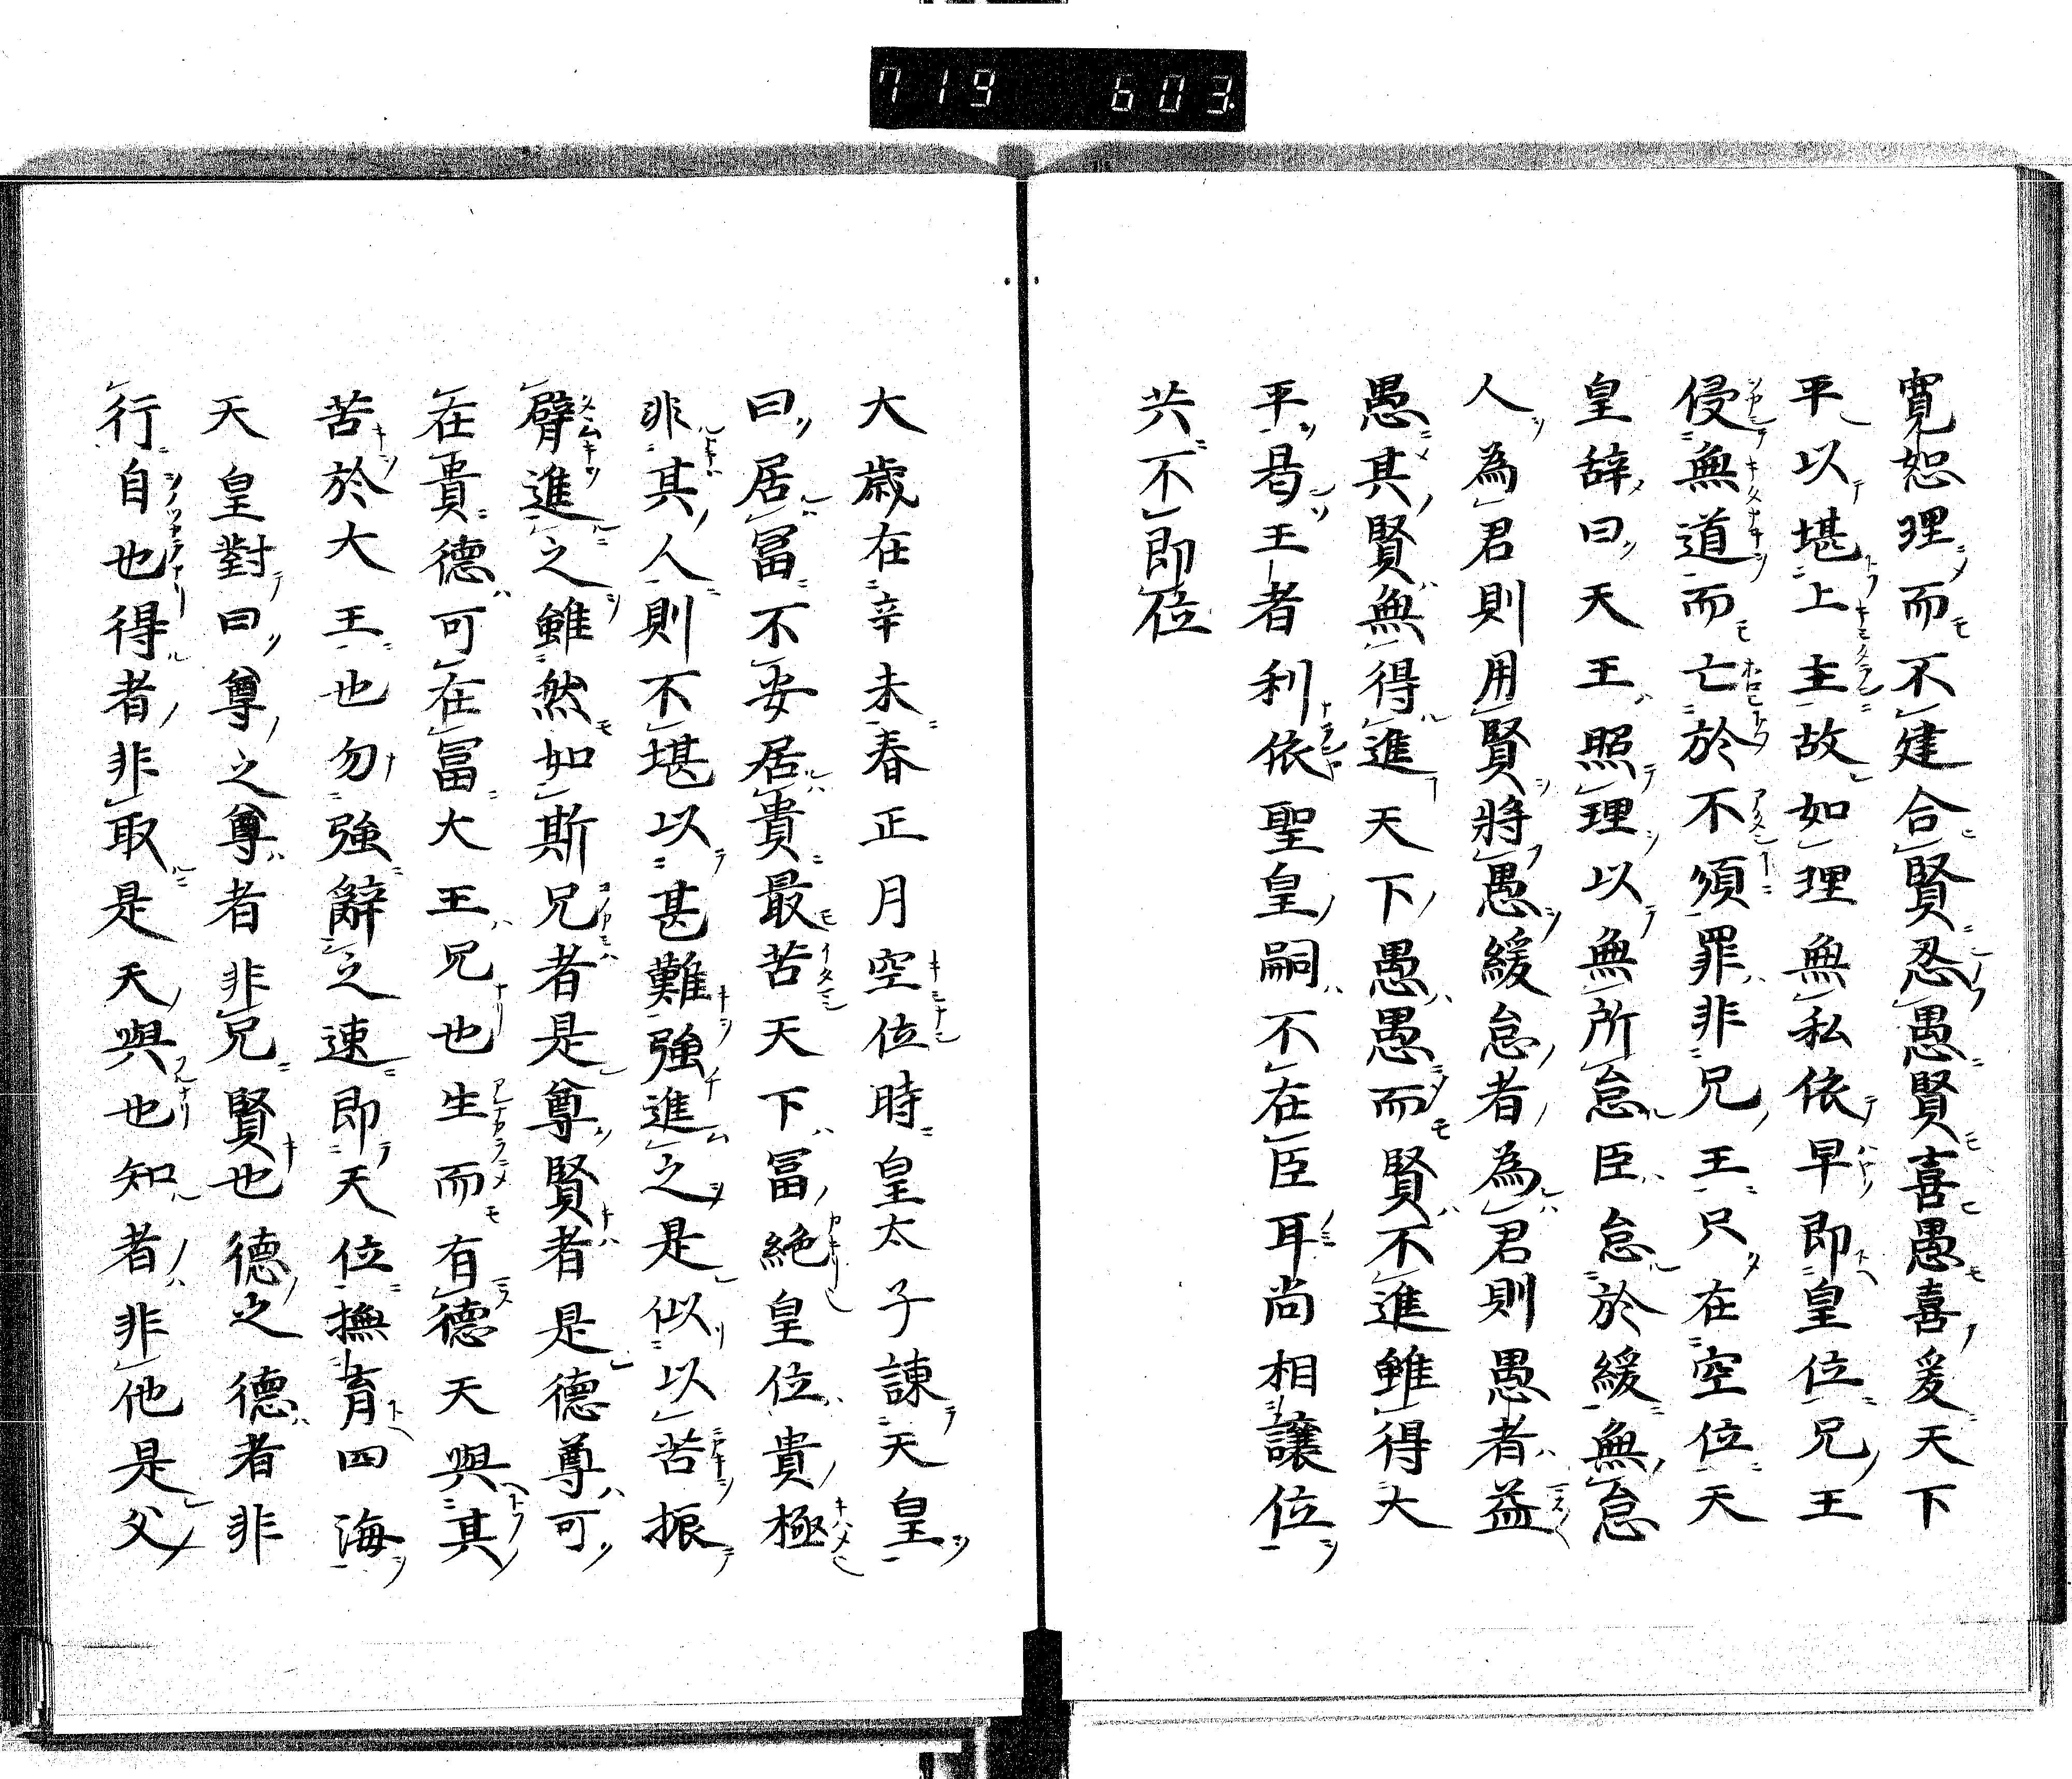 719 603
寛恕理而不建合賢忍愚賢喜愚喜爰天下
平以堪上主故如理無私依早即皇位兄王
侵無道而亡於不須罪非兄王只在空位天
皇辞曰天王照理以無所怠臣怠於緩無怠
人為君則用賢將愚緩怠者為君則愚者益
愚其賢無得進天下愚愚而賢不進雖得大
平曷王者利依聖皇嗣不在臣耳尚相讓位
共不即位
大歳在辛未春正月空位時皇太子諌天皇
曰居冨不安居貴最苦天下冨絶皇位貴極
非其人則不堪以甚難強進之是似以苦振
臂進之雖然如斯兄者是尊賢者是德尊可
在貴德可在冨大王兄也生而有德天與其
苦於大王也勿強辭之速即天位撫育四海
天皇對曰尊之尊者非兄賢也德之德者非
行自也得者非取是天與也知者非他是父